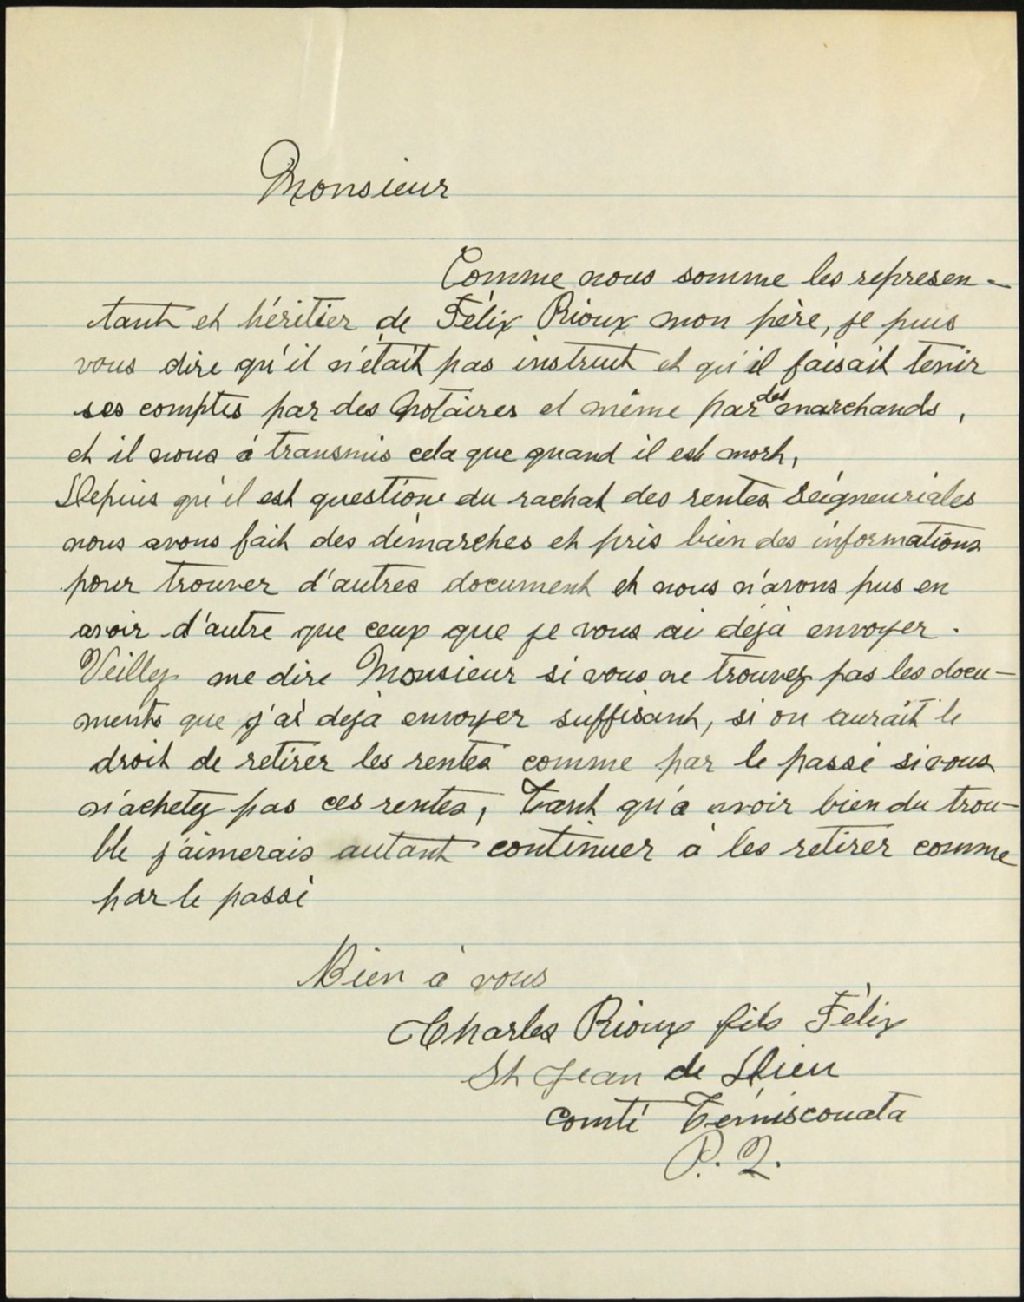 Monsieur
Comme nous somme les represen-
tant et héritier de Félix Rioux mon père, je puis
vous dire qu'il n'était pas instruit et qu'il faisait tenir
ses comptes par des Notaires et même par des marchands,
et il nous à transmis cela que quand il est mort,
Depuis qu'il est question du rachat des rentes Seigneuriales
nous avons fait des démarches et pris bien des informations
pour trouver d'autres document et nous n'avons pus en
avoir d'autre que ceux que je vous ai déjà envoyer.
Veilley me dire Monsieur si vous ne trouvez pas les docu-
ments que j'ai déjà envoyer suffisant, si on aurait le
droit de retirer les rentes comme par le passé si vous
n'achetez pas ces rentes, Tant qu'à avoir bien du trou-
ble j'aimerais autant continuer à les retirer comme
par le passé
Bien à vous
Charles Rioux fils Félix
St Jean de Dieu
comté Témiscouata
P. Q.